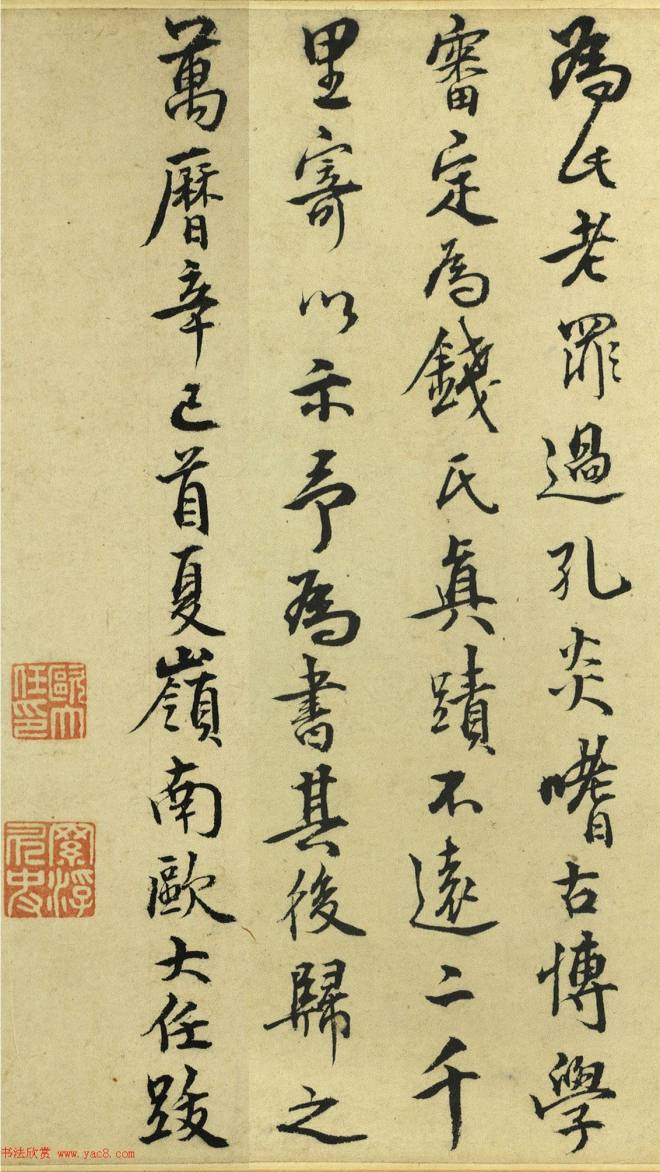 為氏老罪過孔炎嗜古博學
審定為錢氏眞蹟不遠二千
里寄以示予為書其後歸之
萬曆辛巳首夏嶺南歐大任跋
歐大任印
书法欣赏 www.yac8.com